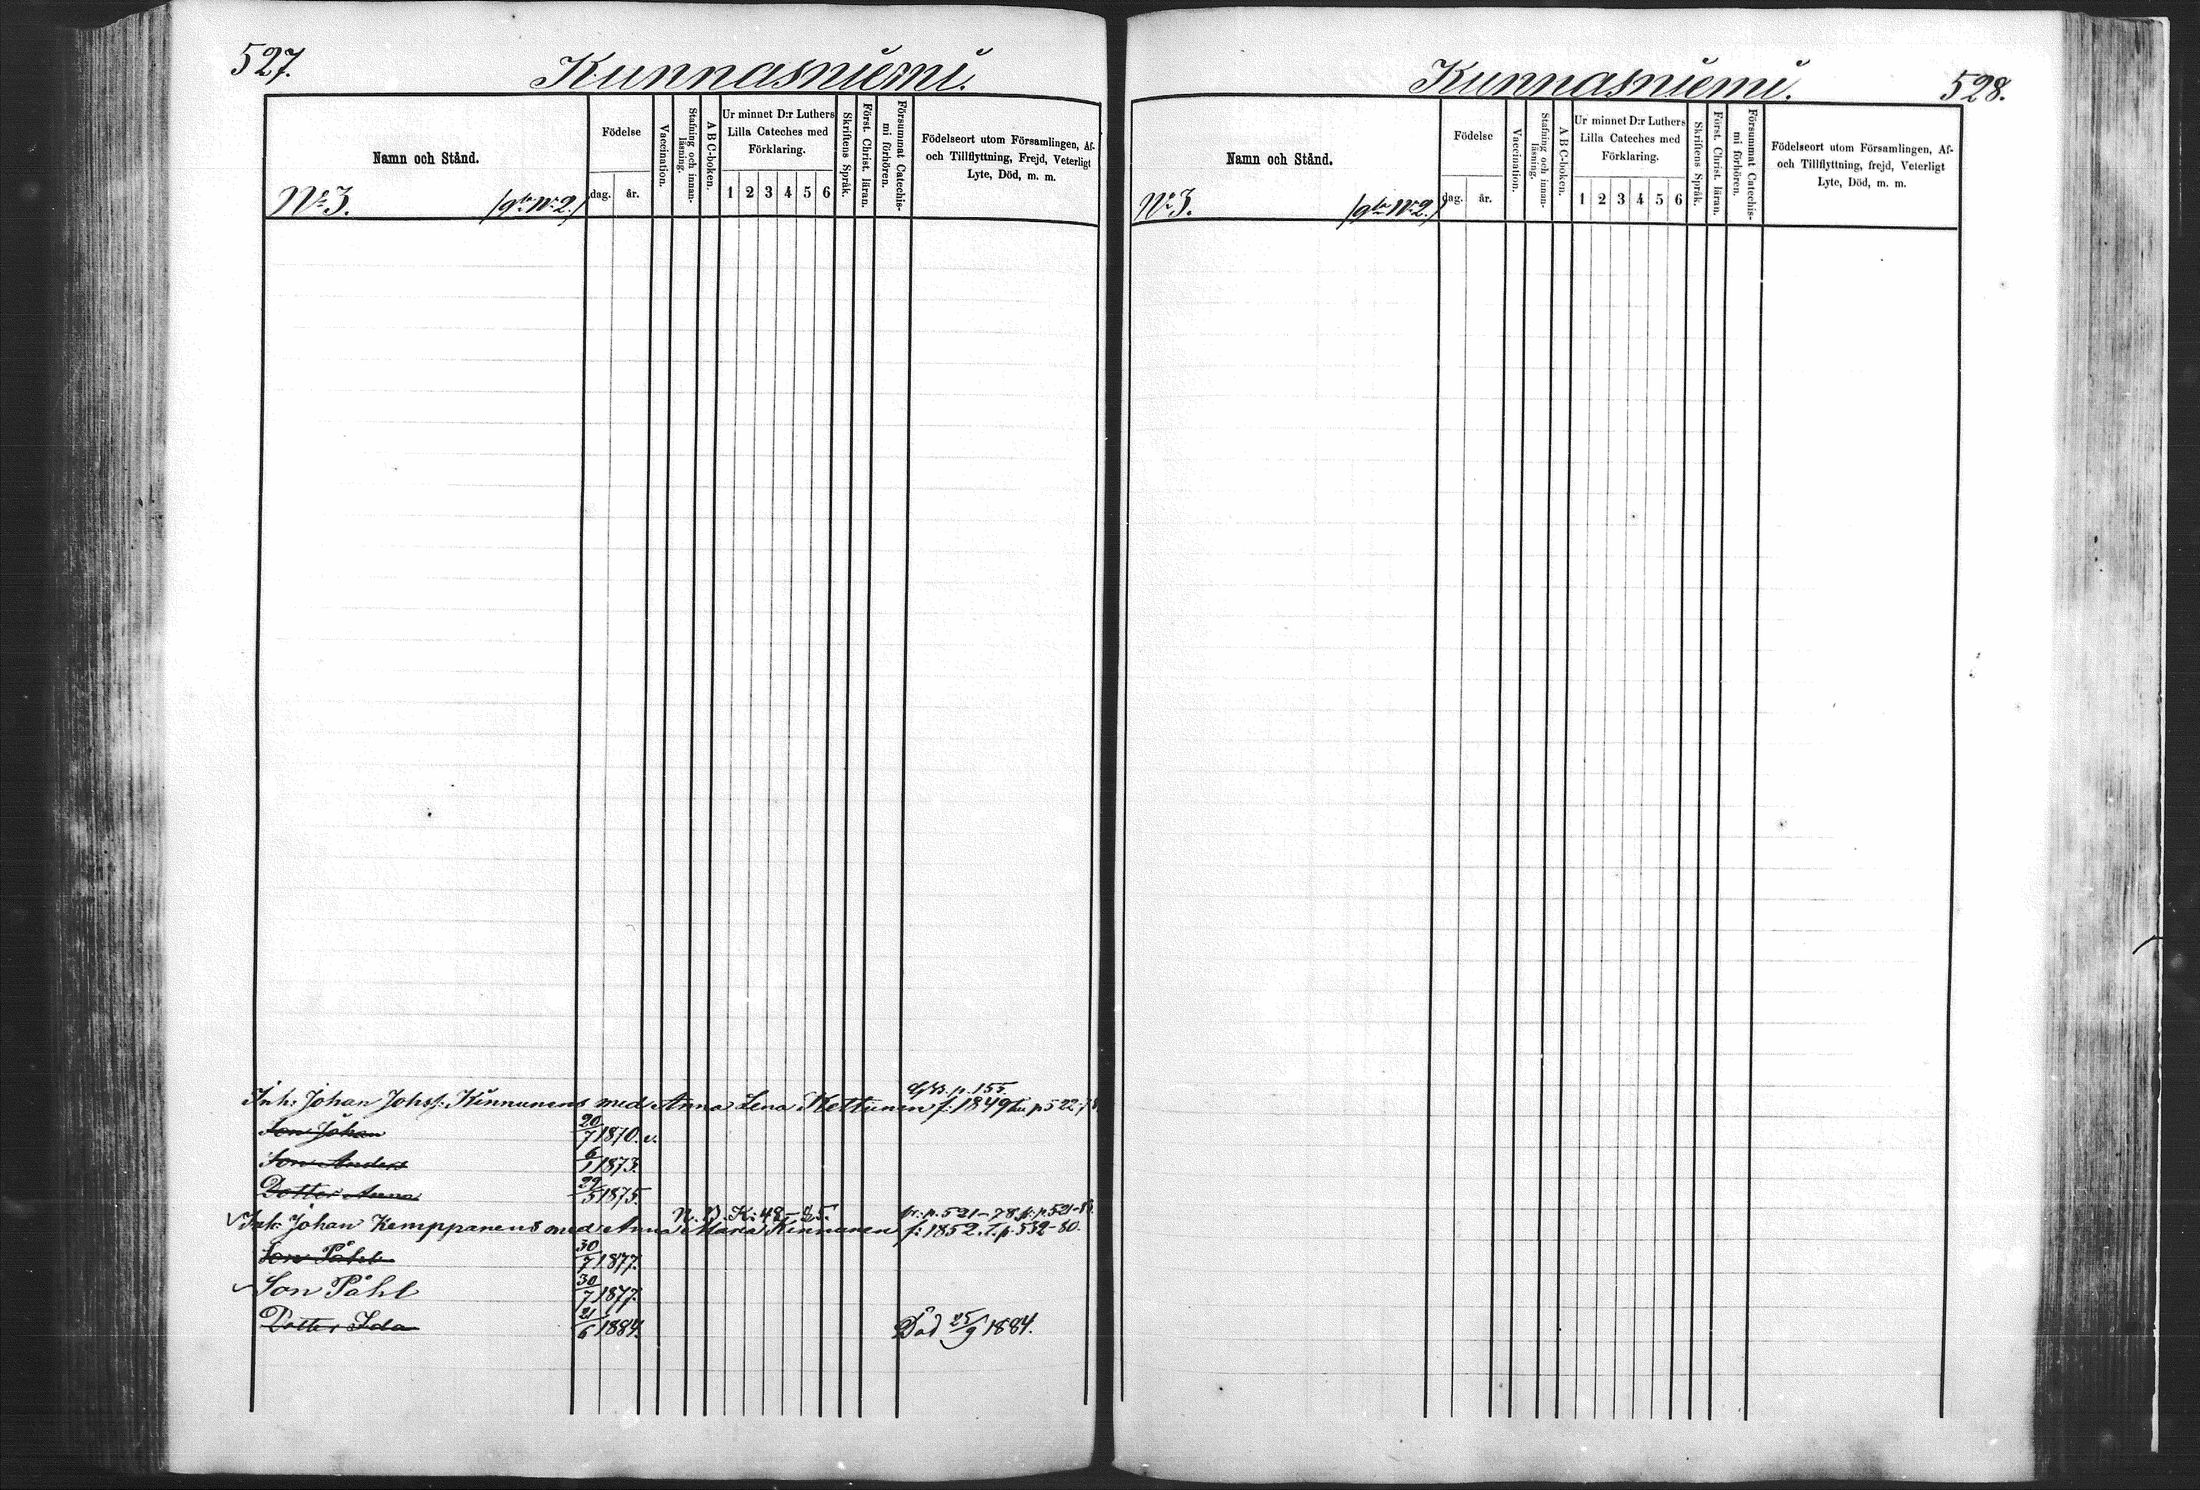 527.
Kunnasniemi.
Namn och Stånd.
Födelse
dag. år.
Vaccination.
Stafning och innan-
läsning.
A B C-boken.
Ur minnet D:r Luthers
Lilla Cateches med
Förklaring.
1 2 3 4 5 6
Skriftens Språk.
Först. Christ. läran.
Försummat Catechis-
mi förhören.
Födelseort utom Församlingen, Af-
och Tillflyttning, Frejd, Veterligt
Lyte, Död, m. m.
N:o 3. /g:la N:o 2./
G.B. p. 155
Inh: Johan Johss: Kinnunens med Anna Lena Kettunen f: 1849 p 522-78
Son Johan 20/7 1870. v.
Son Anders 6/1 1873.
Dotter Anna 29/5 1875.
N. D. K: 48-85. fr: p. 521-78 p 521-8
Inh: Johan Kemppanens med Anna Maria Kinnunen f: 1852. T. p. 532-80.
Son Påhl 30/7 1877.
Son Påhl 30/7 1877.
Dotter Ida 21/6 1884. Död 25/9 1884.
Kunnasniemi.
528.
Namn och Stånd.
Födelse
dag. år.
Vaccination.
Stafning och innan-
läsning.
A B C-boken.
Ur minnet D:r Luthers
Lilla Cateches med
Förklaring.
1 2 3 4 5 6
Skriftens Språk.
Först. Christ. läran.
Försummat Catechis-
mi förhören.
Födelseort utom Församlingen, Af-
och Tillflyttning, frejd, Veterligt
Lyte, Död, m. m.
N:o 3. /g:la N:o 2./